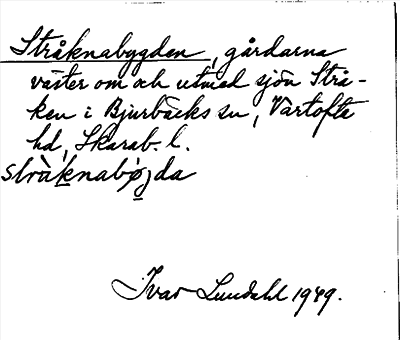 Stråknabygden, gårdarna
väster om och utmed sjön Strå-
ken i Bjurbäcks sn, Vartofta
hd, Skarab. l.
stràknabýgda
Ivar Lundahl 1949.